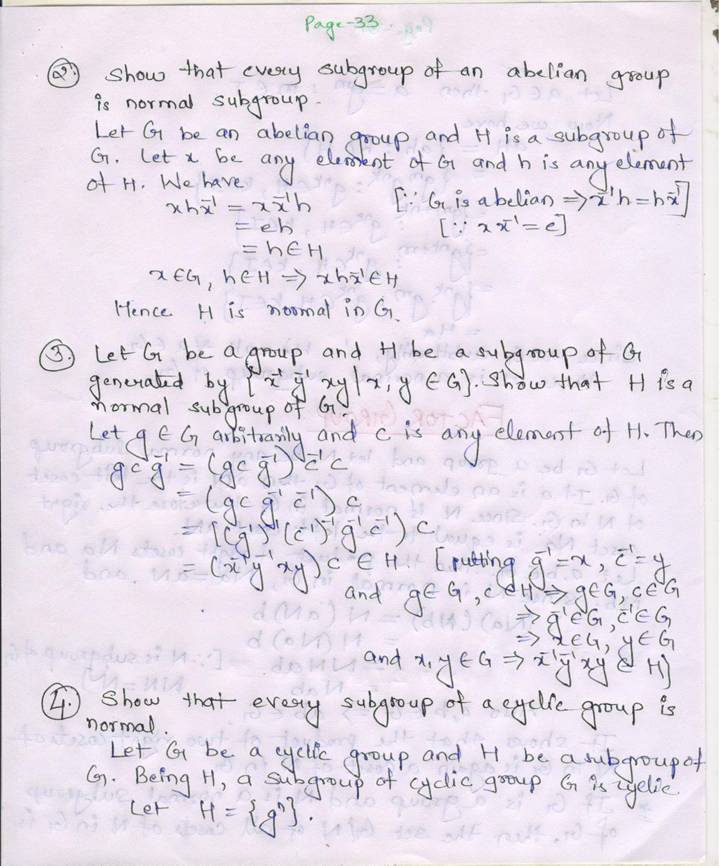 Page-33.
2. Show that every subgroup of an abelian group
is normal subgroup.
Let G be an abelian group and H is a subgroup of
G. Let x be any element of G and h is any element
of H. We have
xhx⁻¹ = xx⁻¹h [∵ G is abelian ⇒ x⁻¹h = hx⁻¹]
= eh [∵ xx⁻¹ = e]
= h ∈ H
x ∈ G, h ∈ H ⇒ xhx⁻¹ ∈ H
Hence H is normal in G.
3. Let G be a group and H be a subgroup of G
generated by {x⁻¹y⁻¹xy | x, y ∈ G}. Show that H is a
normal subgroup of G.
Let g ∈ G arbitrarily and c is any element of H. Then
gcg⁻¹ = (gcg⁻¹)c⁻¹c
= (gcg⁻¹c⁻¹)c
= [(g⁻¹)⁻¹(c⁻¹)⁻¹g⁻¹c⁻¹)c
= (x⁻¹y⁻¹xy)c ∈ H [putting g⁻¹ = x, c⁻¹ = y
and g ∈ G, c ∈ H ⇒ g ∈ G, c ∈ G
⇒ g⁻¹ ∈ G, c⁻¹ ∈ G
⇒ x ∈ G, y ∈ G
and x, y ∈ G ⇒ x⁻¹y⁻¹xy ∈ H]
4. Show that every subgroup of a cyclic group is
normal.
Let G be a cyclic group and H be a subgroup of
G. Being H, a subgroup of cyclic group G is cyclic
Let H = {gⁿ}.